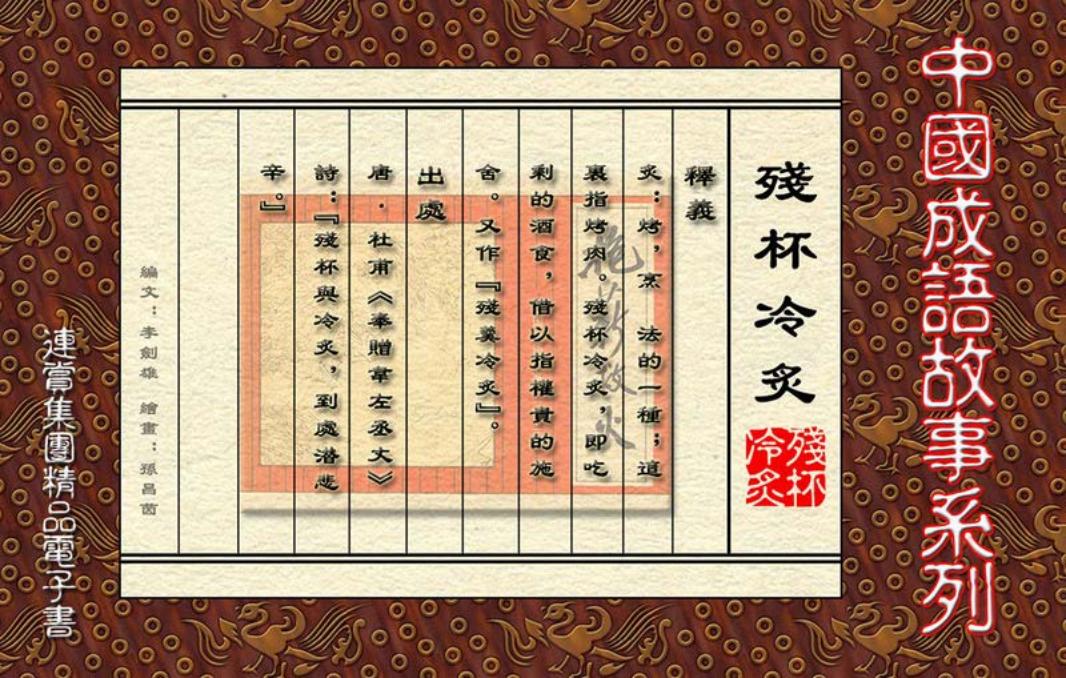 中國成語故事系列
殘杯冷炙
殘杯
冷炙
釋義
炙：烤，烹 法的一種；這
裏指烤肉。殘杯冷炙，即吃
剩的酒食，借以指權貴的施
舍。又作『殘羹冷炙』。
出處
唐·杜甫《奉贈韋左丞丈》
詩：『殘杯與冷炙，到處潛悲
辛。』
編文：李劍雄 繪畫：孫昌茵
連賞集團精品電子書